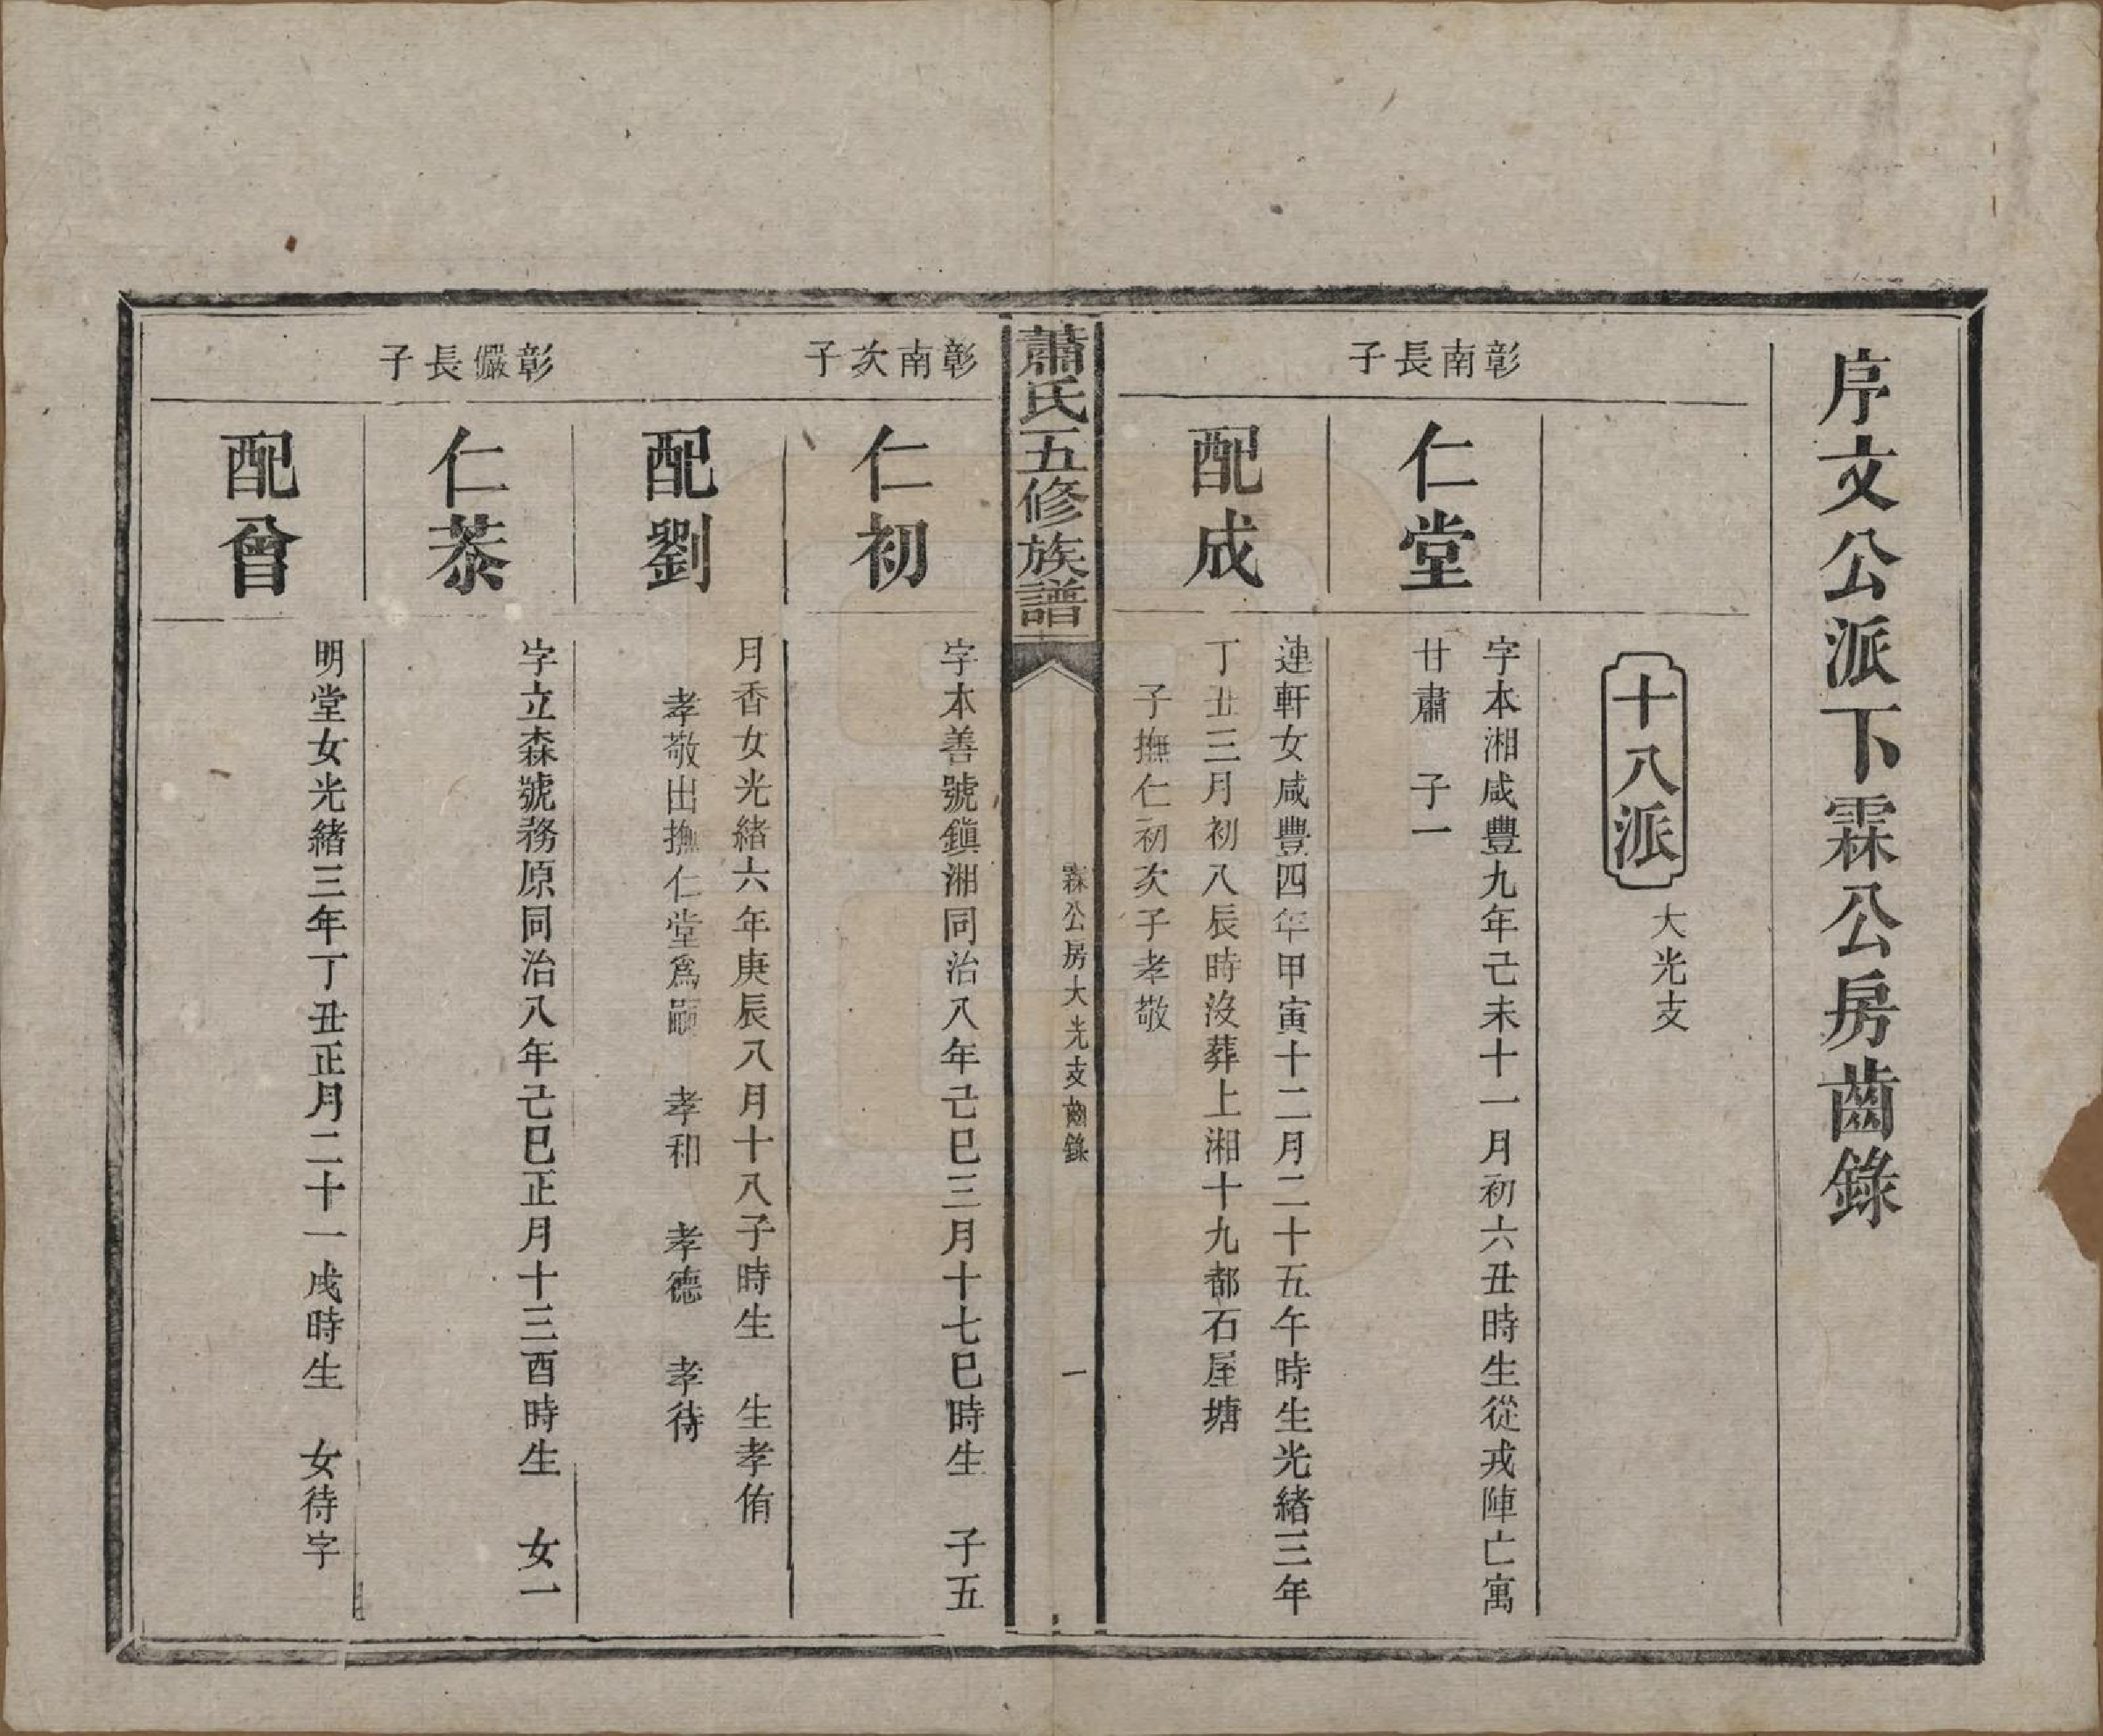 序文公派下霖公房齒錄
十八派
大光支
彰南長子
仁堂
字本湘咸豐九年己未十一月初六丑時生從戎陣亡寓
甘肅　子一
配成
連軒女咸豐四年甲寅十二月二十五午時生光緒三年
丁丑三月初八辰時沒葬上湘十九都石屋塘
子撫仁初次子孝敬
蕭氏五修族譜
霖公房大光支齒錄
一
彰南次子
仁初
字本善號鎭湘同治八年己巳三月十七巳時生　子五
配劉
月香女光緒六年庚辰八月十八子時生　生孝侑
孝敬出撫仁堂爲嗣　孝和　孝德　孝待
彰儼長子
仁恭
字立森號務原同治八年己巳正月十三酉時生　女一
配曾
明堂女光緒三年丁丑正月二十一戌時生　女待字